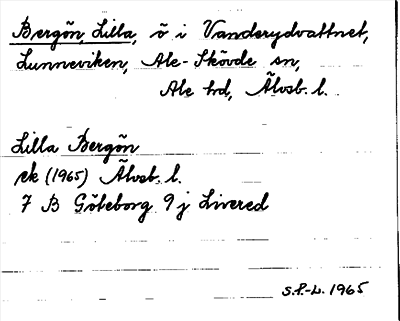 Bergön, Lilla, ö i Vanderydvattnet,
Lunneviken, Ale-Skövde sn,
Ale hd, Älvsb. l.
Lilla Bergön
ek (1965) Älvsb. l.
7 B Göteborg 9 j Livered
S.P.-L. 1965